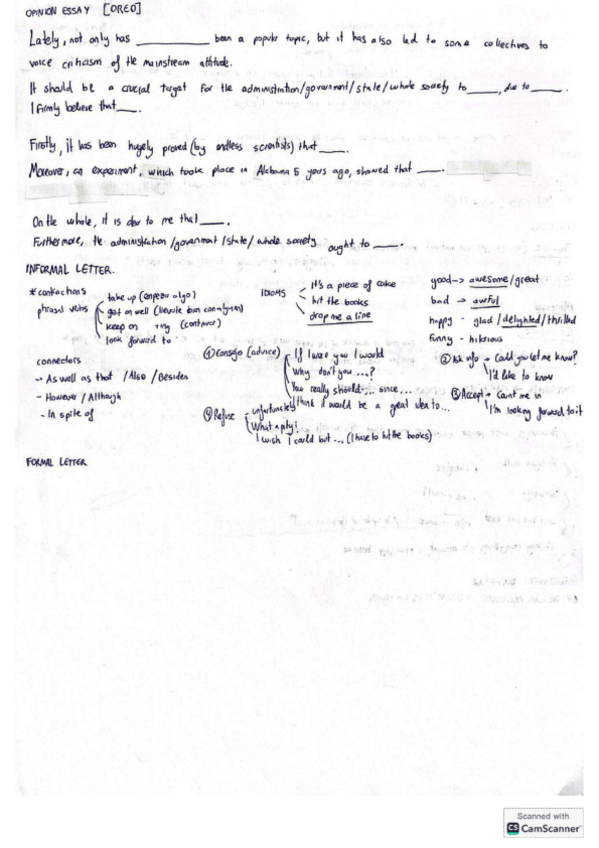 OPINION ESSAY [OREO]
Lately, not only has ____________ been a popular topic, but it has also led to some collectives to
voice criticism of the mainstream attitude.
It should be a crucial target for the administration/government/state/whole society to _____, due to _____.
I firmly believe that ____.
Firstly, it has been hugely proved (by endless scientists) that ____.
Moreover, an experiment, which took place in Alabama 5 years ago, showed that ____.
On the whole, it is clear to me that ____.
Furthermore, the administration/government/state/whole society ought to ____.
INFORMAL LETTER.
*contractions
phrasal verbs
take up (empezar algo)
get on well (llevarte bien con alguien)
keep on + ing (continuar)
look forward to
IDIOMS
it's a piece of cake
hit the books
drop me a line
good -> awesome/great
bad -> awful
happy - glad / delighted / thrilled
funny - hilarious
connectors
- As well as that / Also / Besides
- However / Although
- In spite of
① Consejo (advice)
If I were you I would
Why don't you ...?
You really should ... since ...
I think it would be a great idea to ...
② Ask info
Could you let me know?
I'd like to know
③ Accept
Count me in
I'm looking forward to it
④ Refuse
unfortunately
What a pity!
I wish I could but ... (I have to hit the books)
FORMAL LETTER
Scanned with
CS CamScanner